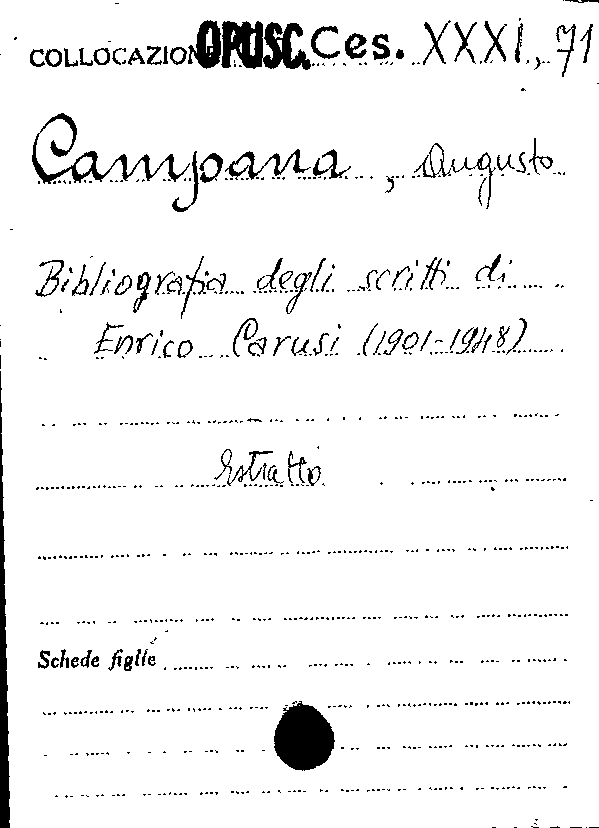 COLLOCAZIONE OPUSC. Ces. XXXI, 71
Campana, Augusto
Bibliografia degli scritti di
Enrico Carusi (1901-1948)
Estratto
Schede figlie